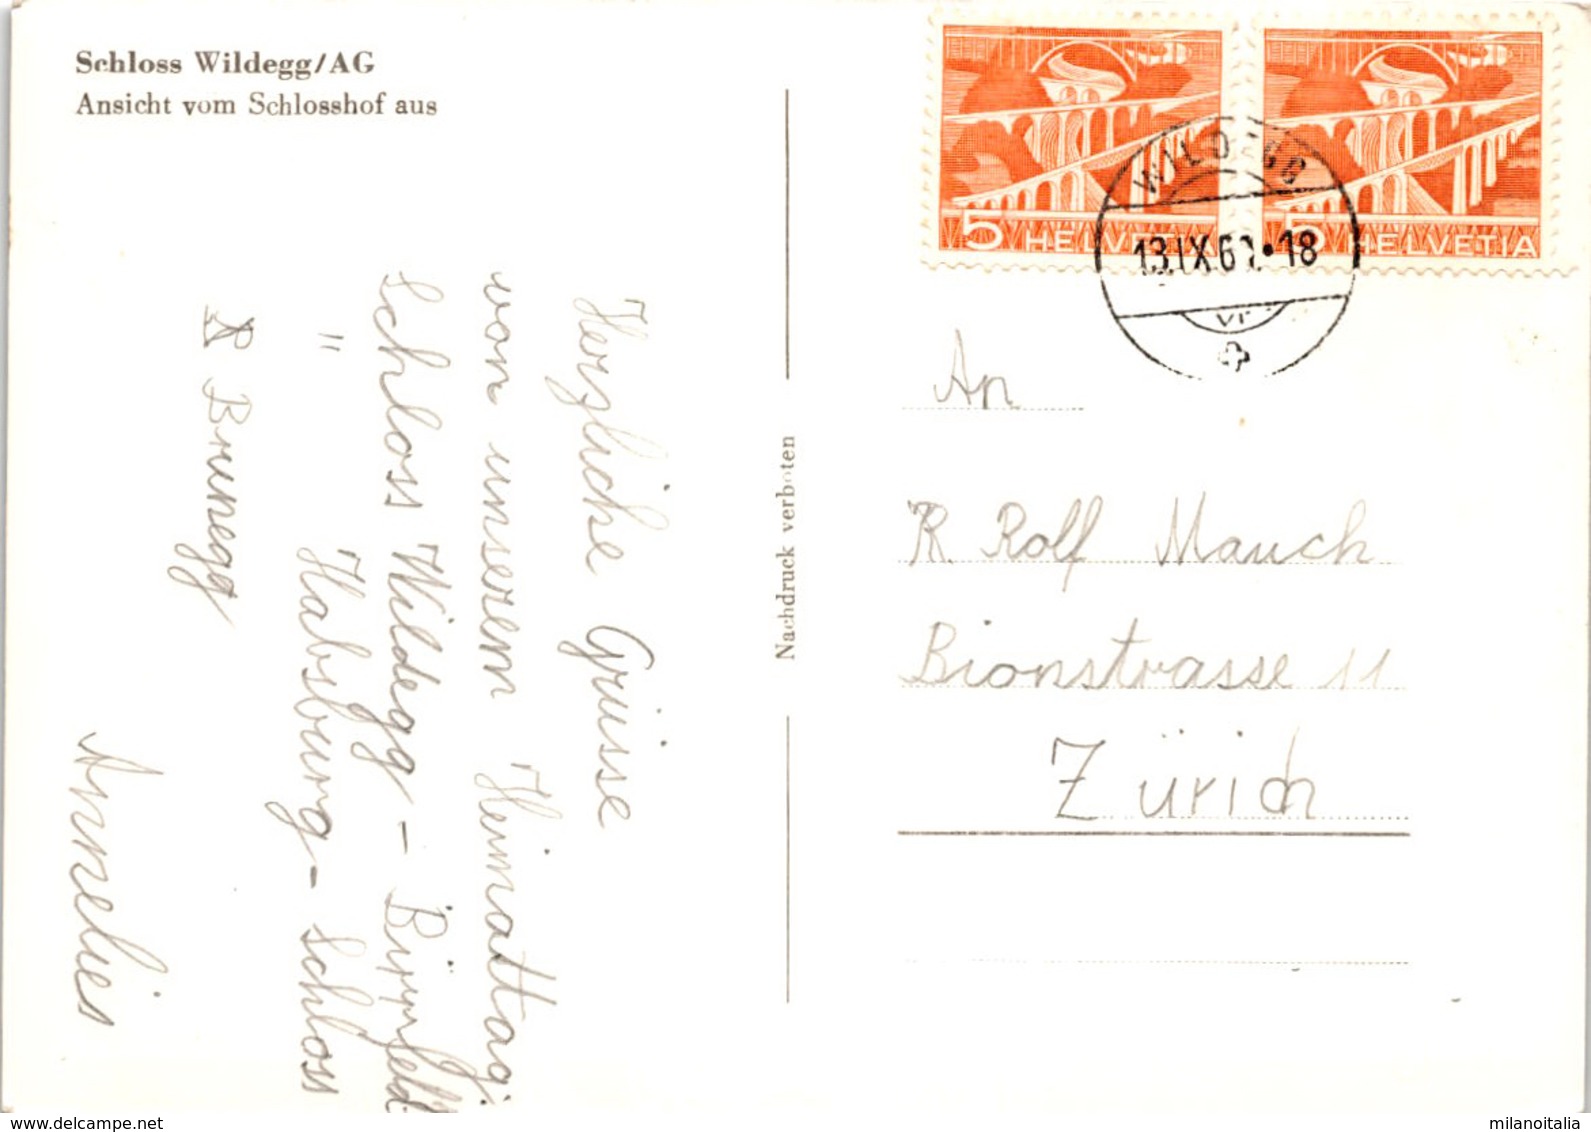 Schloss Wildegg/AG
Ansicht vom Schlosshof aus
Herzliche Grüsse
von unserem Heimattag:
Schloss Wildegg - Birrfeld
" Habsburg - Schloss
Brunegg
Annelies
Nachdruck verboten
5 HELVETIA
5 HELVETIA
WILDEGG
13.IX.60.•18
An
R. Rolf Mauch
Bionstrasse 11
Zürich
www.delcampe.net
milanoitalia